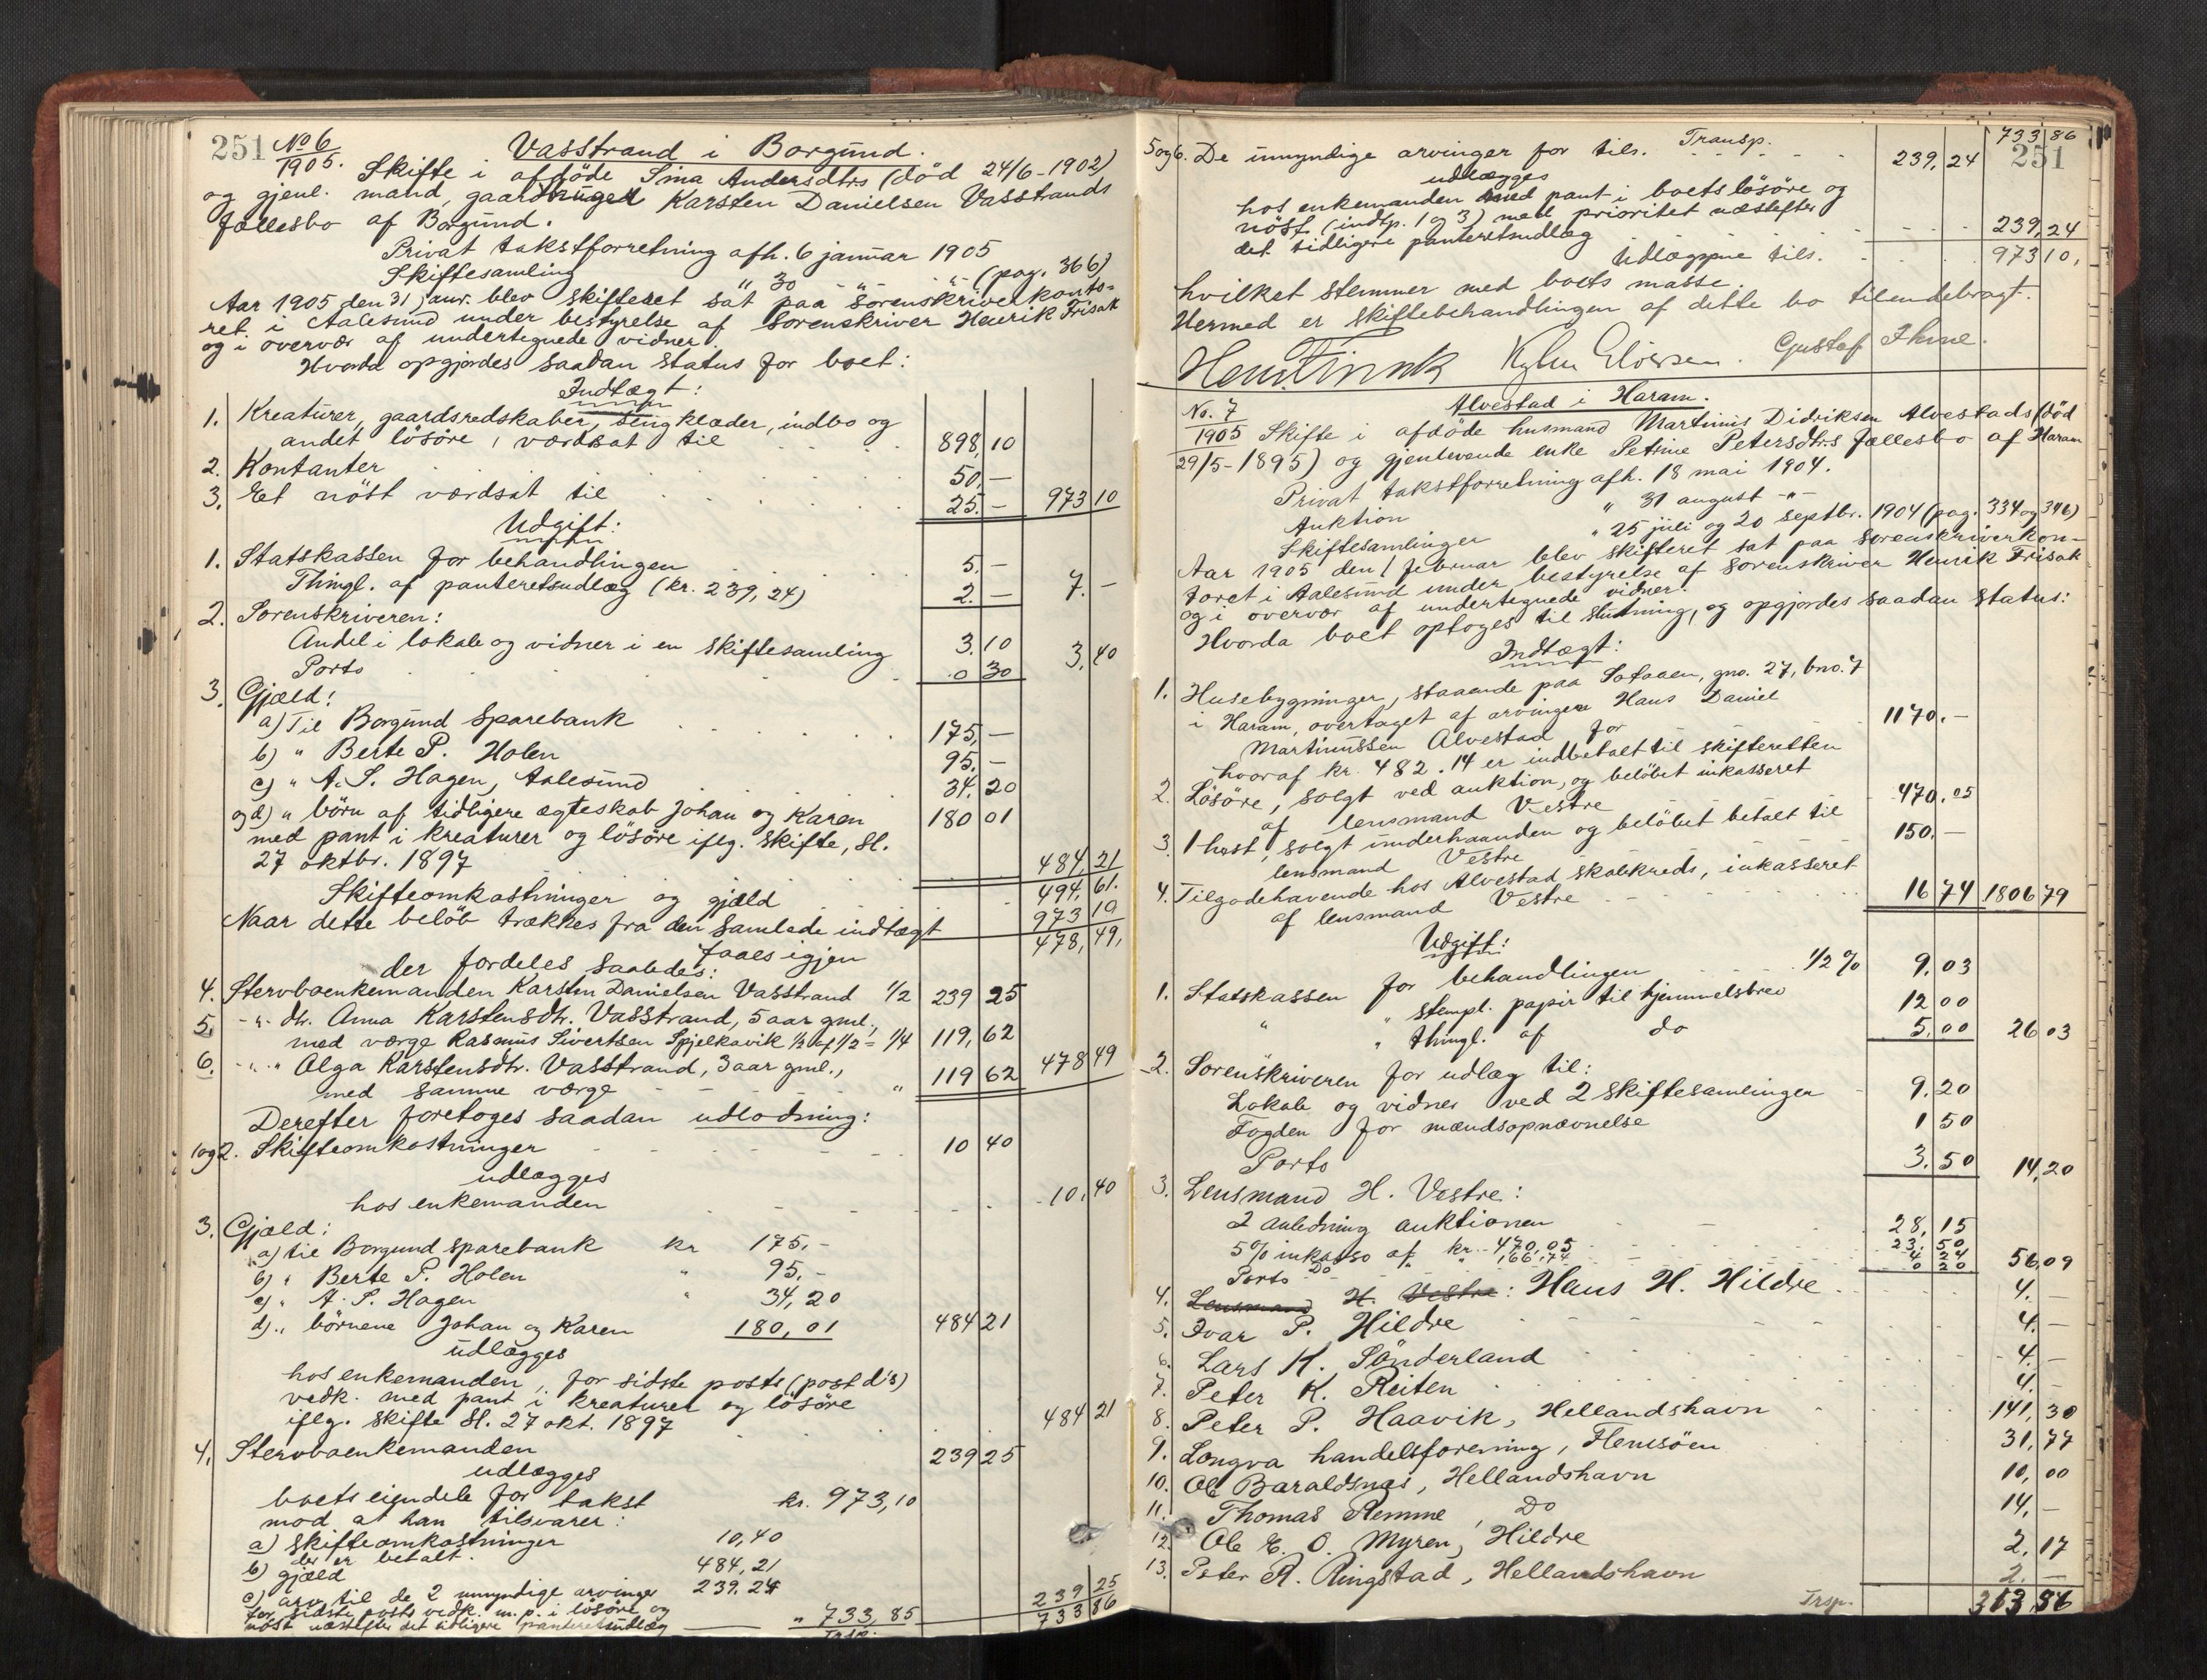 251 No 6 Vasstrand i Borgund.
1905. Skifte i afdöde Sina Andersdtrs (död 24/6-1902)
og gjenl. mand, gaardbruger Karsten Danielsen Vasstrands
fællesbo af Borgund.
Privat takstforretning afh. 6 januar 1905
Skiftesamling " 30 -"- -"- (pag. 366)
Aar 1905 den 31 janr. blev skifteret sat paa sorenskriverkonto-
ret i Aalesund under bestyrelse af Sorenskriver Henrik Frisak
og i overvær af undertegnede vidner.
Hvorda opgjordes saadan status for boet:
Indtægt:
1. Kreaturer, gaardsredskaber, sengklæder, indbo og
andet lösöre, værdsat til 898,10
2. Kontanter 50,—
3. Et nöst værdsat til 25.— 973 10
Udgift:
1. Statskassen for behandlingen 5.—
Thingl. af panteretsudlæg (kr. 239,24) 2.— 7.—
2. Sorenskriveren:
Andel i lokale og vidner i en skiftesamling 3.10
Porto 0 30 3,40
3. Gjæld:
a) Til Borgund Sparebank 175,—
b) " Berte P. Holen 95.—
c) " A. S. Hagen, Aalesund 34.20
og d) " börn af tidligere ægteskab Johan og Karen 180 01
med pant i kreaturer og lösöre iflg. skifte, sl.
27 oktbr. 1897 484 21
Skifteomkostninger og gjæld 494,61.
Naar dette belöb trækkes fra den samlede indtægt 973 10
faaes igjen 478,49,
der fordeles saaledes:
4. Stervboenkemanden Karsten Danielsen Vasstrand 1/2 239 25
5. -"- dtr. Anna Karstensdtr. Vasstrand, 5 aar gml.,
med værge Rasmus Sivertsen Spjelkavik 1/2 af 1/2 = 1/4 119,62
6. -"- " Olga Karstensdtr. Vasstrand, 3 aar gml.,
med samme værge " 119 62 478 49
Derefter foretoges saadan udlodning:
1 og 2. Skifteomkostninger 10 40
udlægges
hos enkemanden 10,40
3. Gjæld:
a) til Borgund sparebank kr 175.-
b) " Berte P. Holen " 95.-
c) " A. S. Hagen " 34,20
d) " börnene Johan og Karen 180,01 484 21
udlægges
hos enkemanden, for sidste posts (post d's)
vedk. med pant i kreaturer og lösöre
iflg. skifte sl. 27 okt. 1897 484 21
4. Stervboenkemanden 239 25
udlægges
boets eiendele for takst kr. 973,10
mod at han tilsvarer:
a) skifteomkostninger 10,40
der er betalt.
b) gjæld 484,21
c) arv til de 2 umyndige arvinger 239.24
for sidste posts vedk. m. p. i lösöre og 239 25
nöst næstefter det tidligere panteretsudlæg " 733,85 733 86
Trsp.
Transp. 733 86
251
5 og 6. De umyndige arvinger for tils. 239,24
udlægges
hos enkemanden med pant i boets lösöre og
nöst (indtp. 1 og 3) med prioritet næstefter
det tidligere panteretsudlæg 239,24
Udlæggene tils. 973 10,
hvilket stemmer med boets masse.
Hermed er skiftebehandlingen af dette bo tilendebragt.
Gustaf Ihme.
No. 7 Alvestad i Haram.
1905 Skifte i afdöde husmand Martinus Didriksen Alvestads (död
29/5-1895) og gjenlevende enke Petrine Petersdtrs fællesbo af Haram
Privat takstforretning afh. 18 mai 1904.
Auktion " 31 august -"-
Skiftesamlinger " 25 juli og 20 septbr. 1904 (pag. 334 og 346)
Aar 1905 den 1 februar blev skifteret sat paa sorenskriverkon-
toret i Aalesund under bestyrelse af sorenskriver Henrik Frisak
og i overvær af undertegnede vidner.
Hvorda boet optoges til slutning, og opgjordes saadan status:
Indtægt:
1. Husebygninger, staaende paa Sataaen, gno. 27, bno. 7
i Haram, overtaget af arvingen Hans Daniel
Martinussen Alvestad for 1170.—
hvoraf kr. 482.14 er indbetalt til skifteretten
2. Lösöre, solgt ved auktion, og belöbet inkasseret
af lensmand Vestre 470.05
3. 1 hest, solgt underhaanden og belöbet betalt til
lensmand Vestre 150.—
4. Tilgodehavende hos Alvestad skolekreds, inkasseret
af lensmand Vestre 16 74 1806 79
Udgift:
1. Statskassen for behandlingen 1/2 % 9.03
" " stempl. papir til hjemmelsbrev 12 00
" thingl. af do 5.00 26 03
2. Sorenskriveren for udlæg til:
Lokale og vidner ved 2 skiftesamlinger 9.20
Fogden for mændsopnævnelse 1 50
Porto 3.50 14,20
3. Lensmand H. Vestre:
I anledning auktionen 28,15
5% inkasso af kr. 470,05 23,50
Do " 166,74 4 24
Porto 0 20 56,09
4. Lensmand H. Vestre: Hans H. Hildre 4.—
5. Ivar P. Hildre 4.—
6. Lars H. Sönderland 4.—
7. Peter K. Reiten 4.—
8. Peter P. Haavik, Hellandshavn 141,30
9. Longva handelsforening, Flemsöen 31,77
10. Ole Baraldsnæs, Hellandshavn 10,00
11. Thomas Remme, Do 14,—
12. Ole E. O. Myren, Hildre 2,17
13. Peter A. Ringstad, Hellandshavn 2.—
Trsp. 313,56